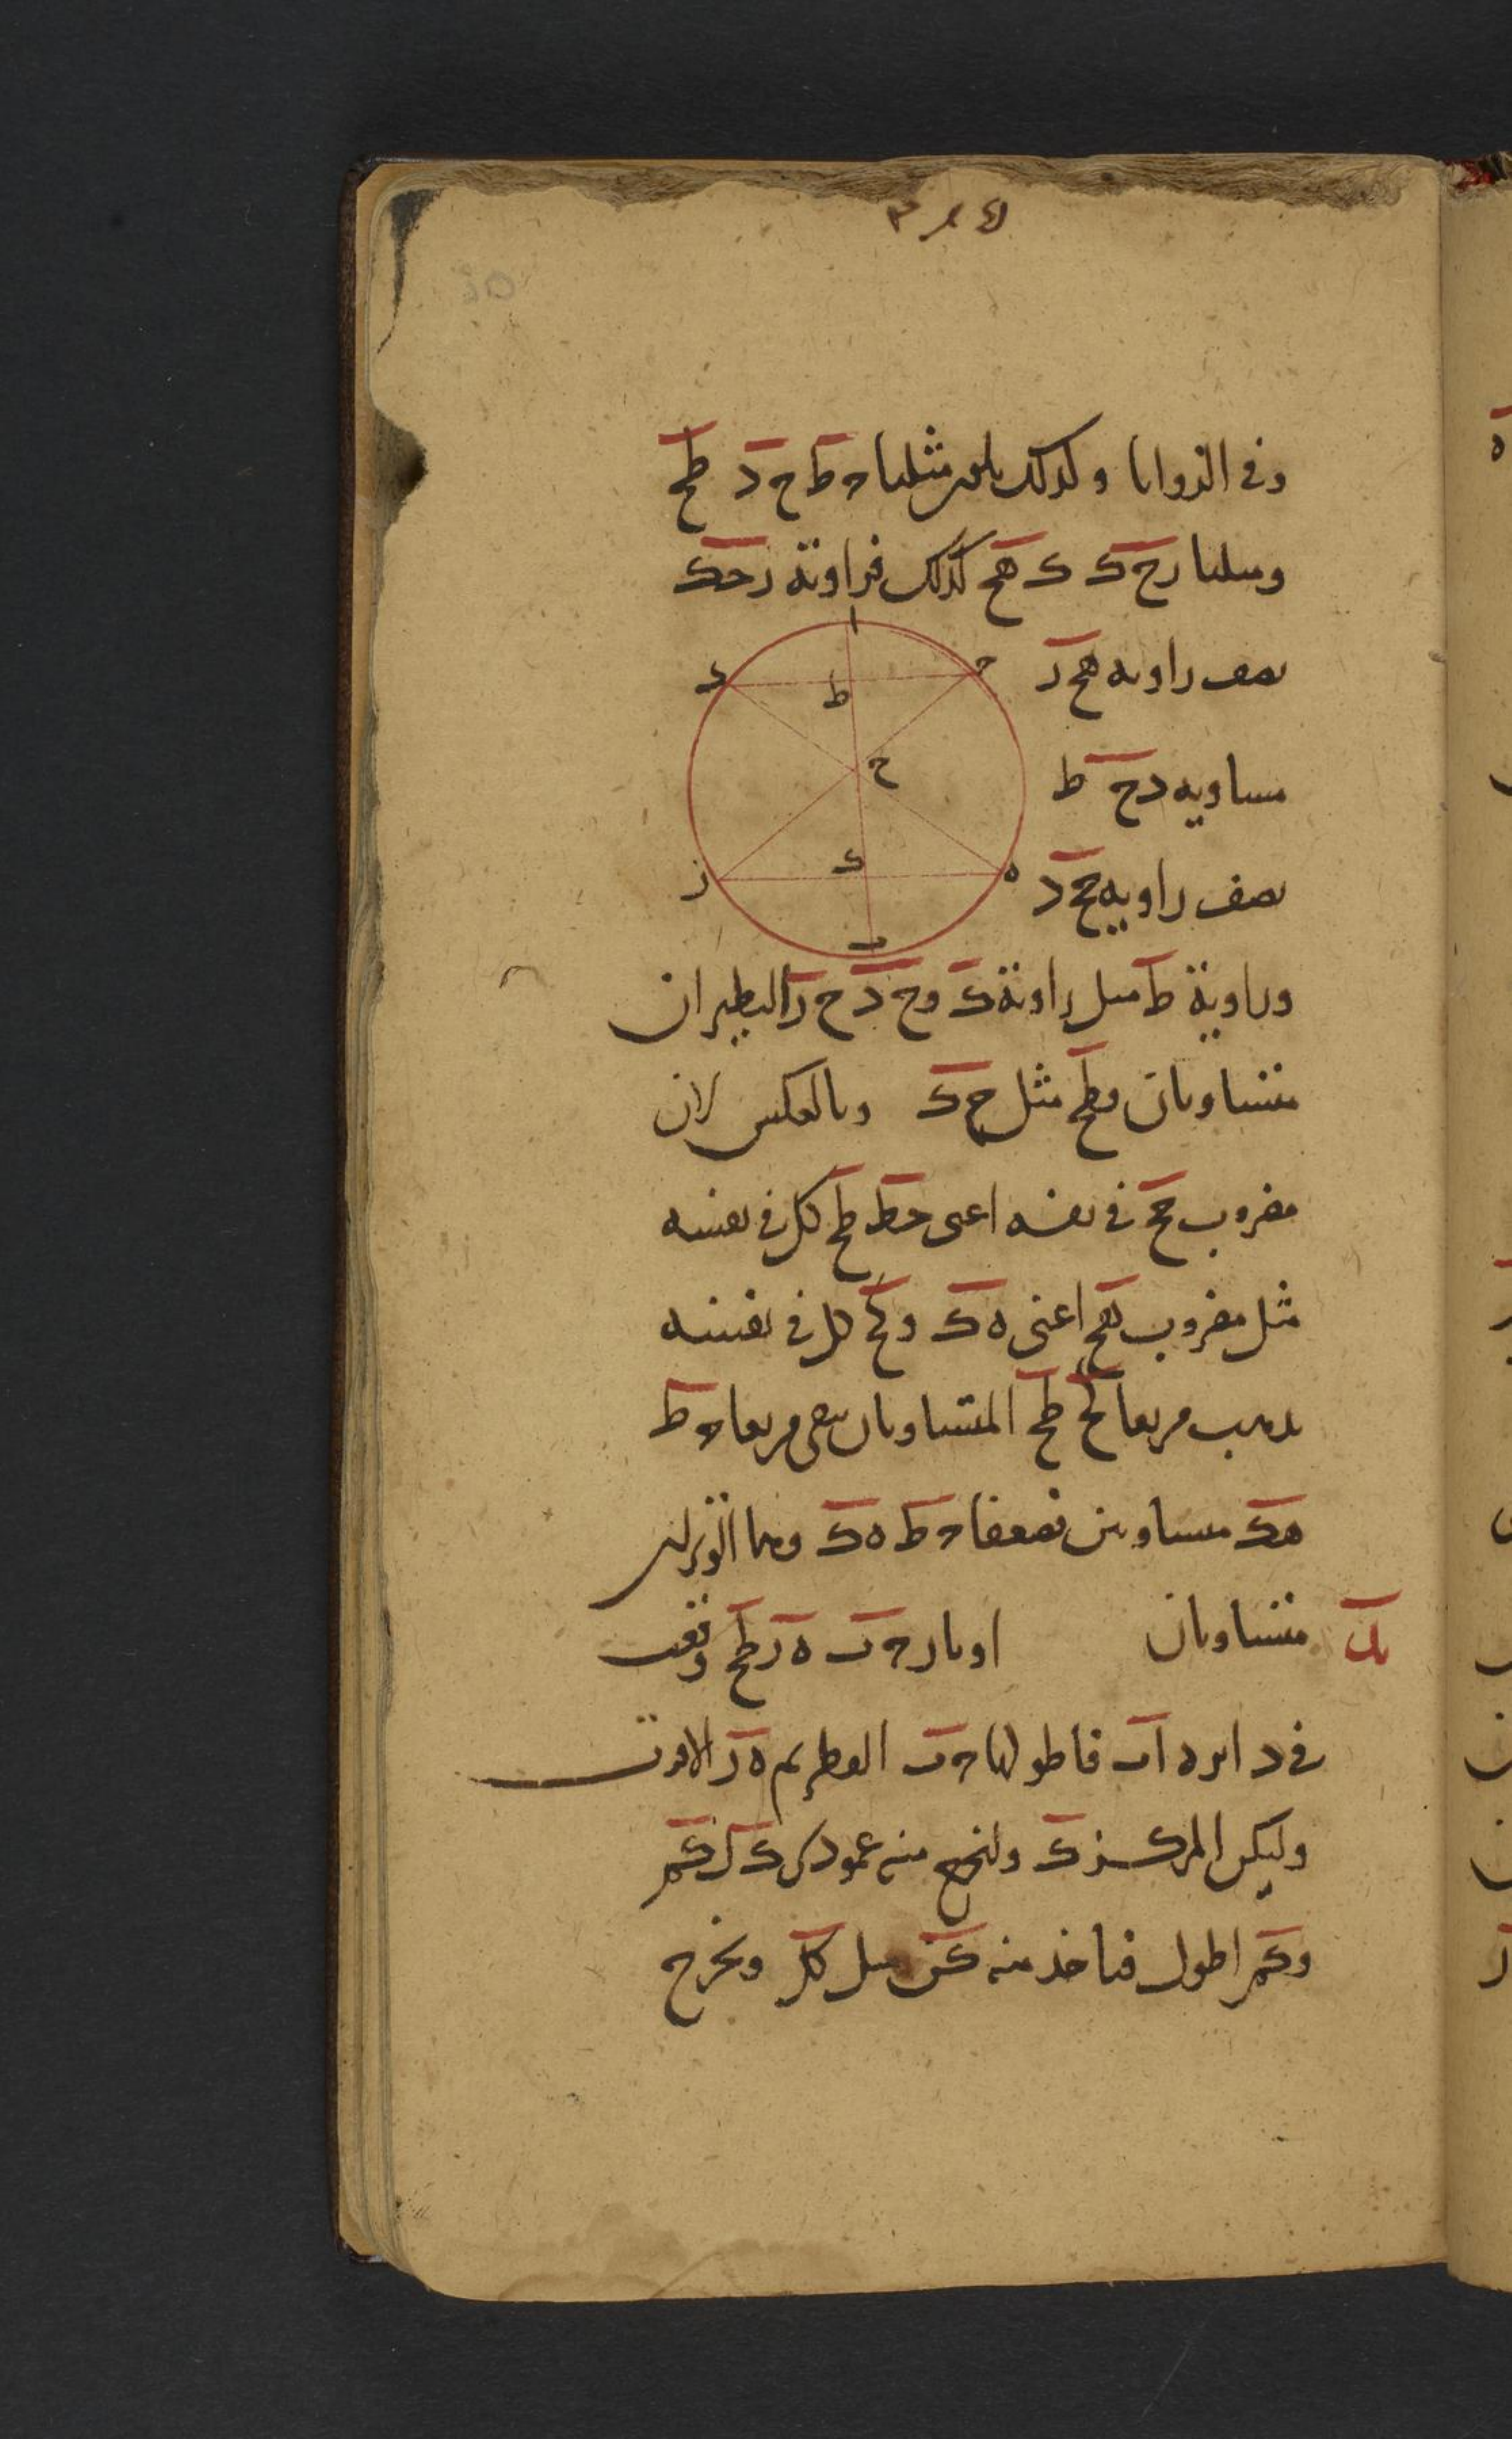 وفى الزوايا وكذلك يكون مثلثا ح ط ح د ط ح
ومثلثا ر ح ك ك ه ح كذلك فزاوية ر ح ك
نصف زاوية ه ح ر
مساوية د ح ط
نصف زاوية ح ح د
ا
د
ح
ط
ح
ك
ز
ه
ب
وزاوية ط مثل زاوية ك و ح د ح ر النظيران
متساويان و ط ح مثل ح ك وبالعكس لان
مضروب ح ح فى نفسه اعنى ح ط ط ح كل فى نفسه
مثل مضروب ه ح اعنى ه ك و ك ح كل فى نفسه
يذهب مربعا ك ح ط ح المتساويان يبقى مربعا ح ط
ه ك متساويين فضعفا ح ط ه ك وهما
يد
متساويان اوتار ح د ه ر ط ح وقعت
فى دايره ا ب فاطولها ح د القطر ثم ه ر الاقرب
وليكن المركز ك ولنخرج منه عمودى ك ل ك م
و ك م اطول فناخذ منه ك ن مثل ك ل ونخرج